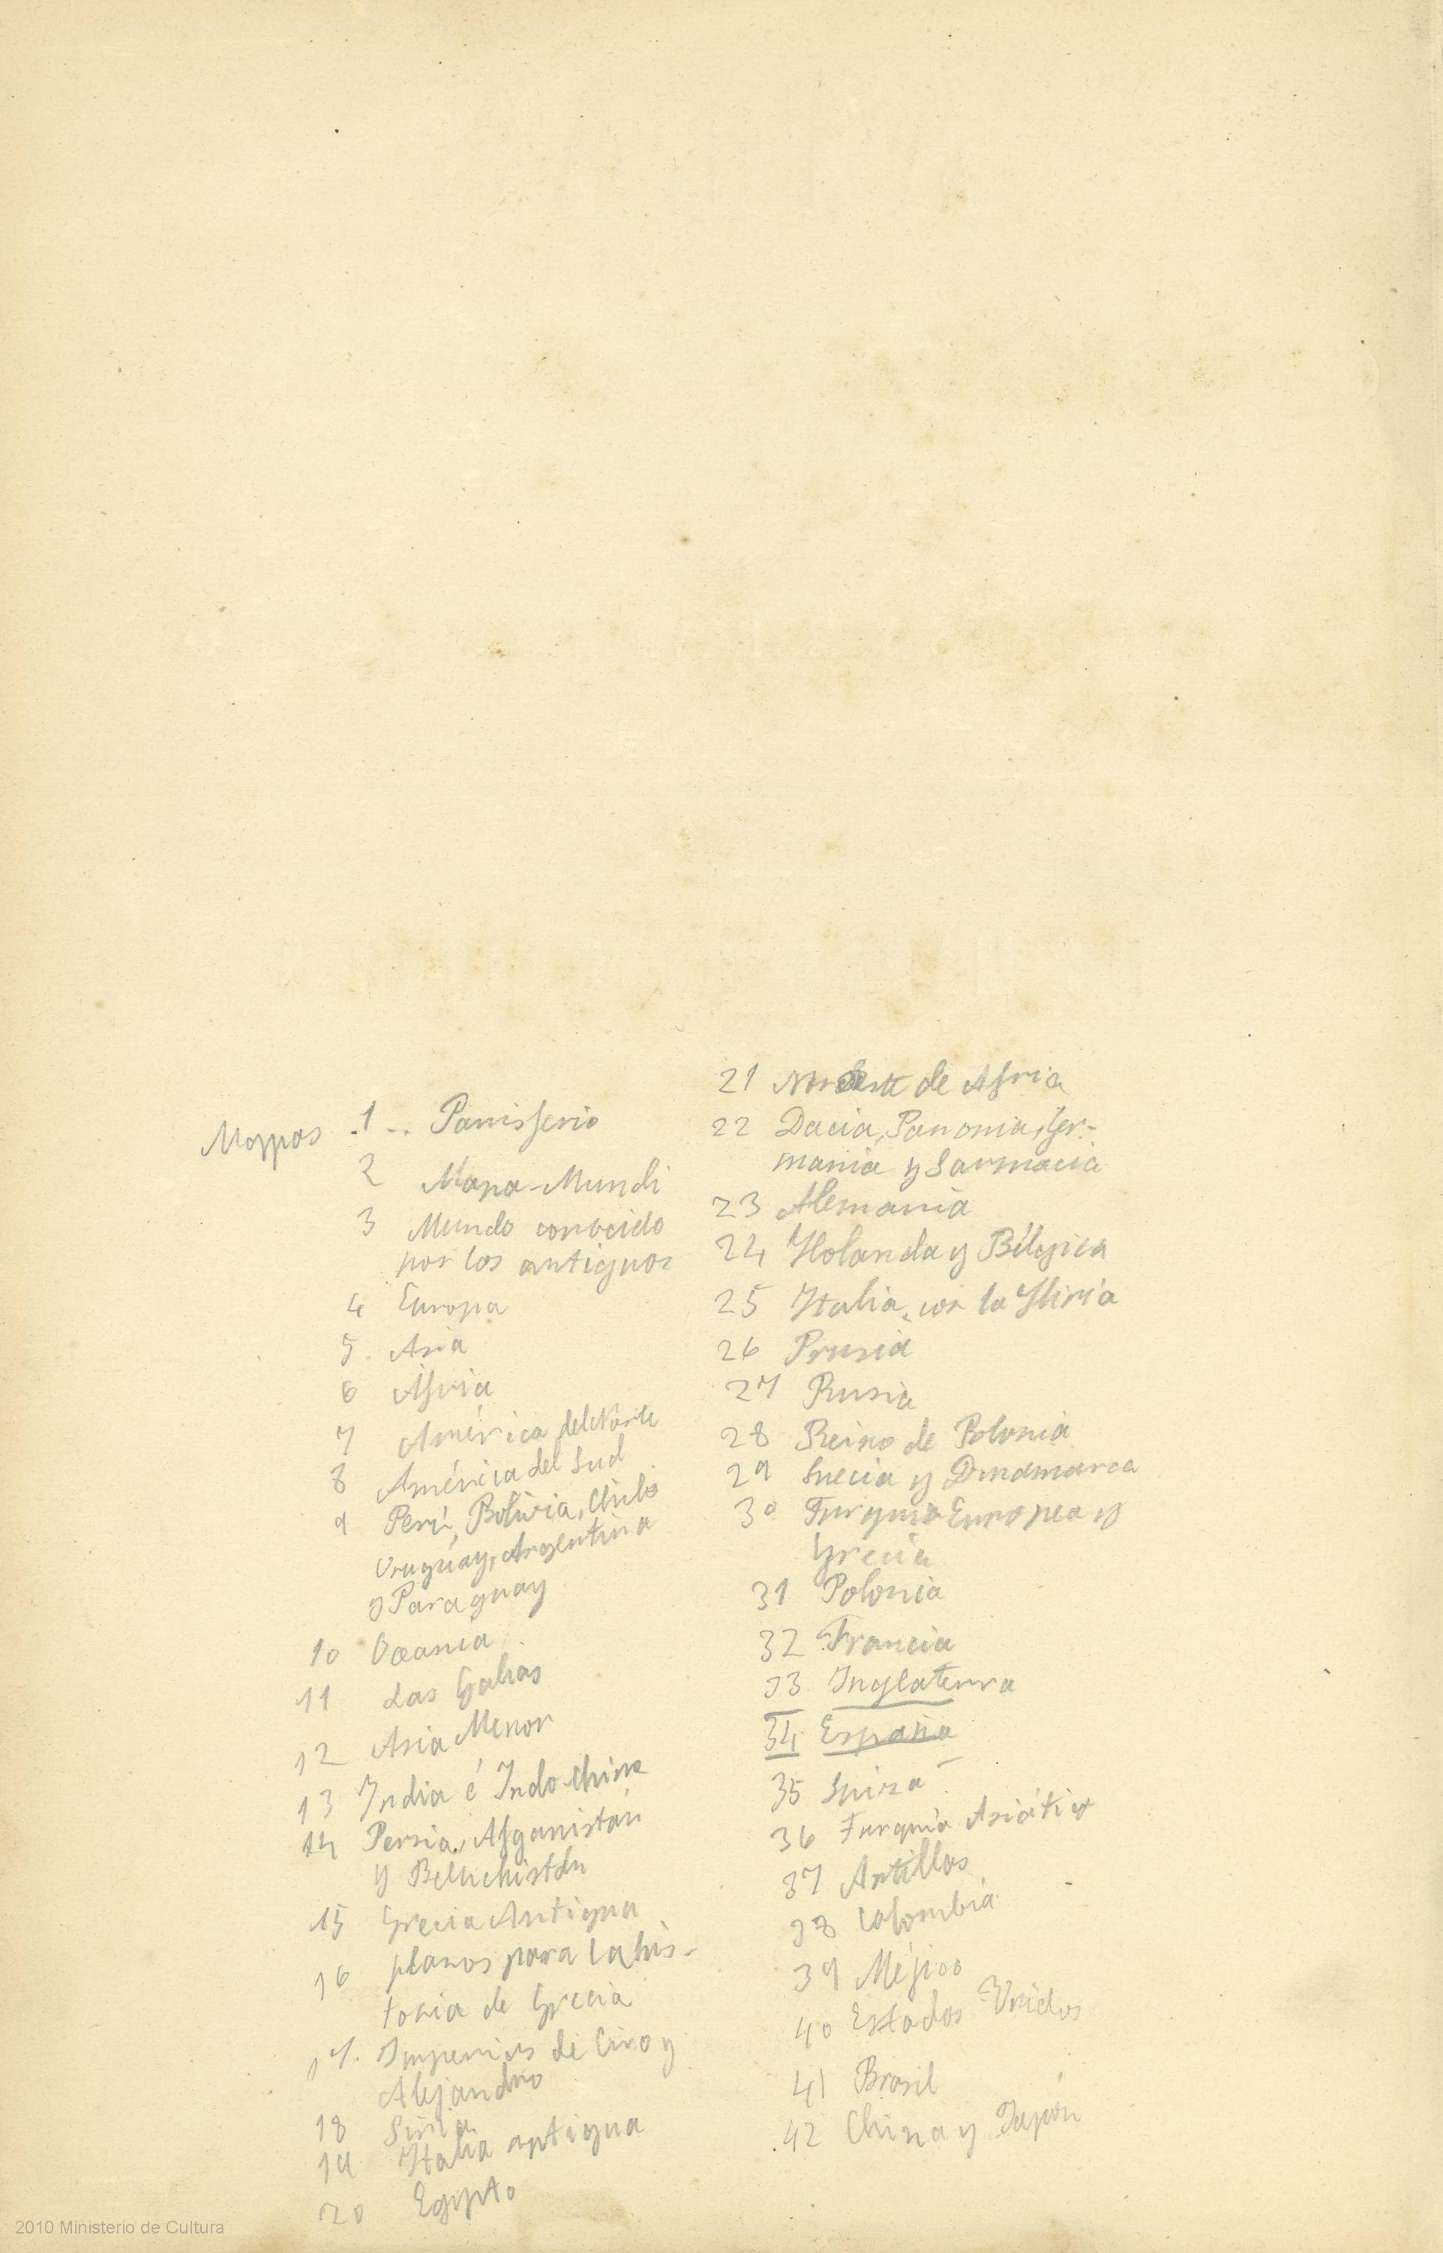 Mappas .1 .. Panisferio
2 Mapa-Mundi
3 Mundo conocido
por los antiguos
4 Europa
5. Asia
6 Africa
7 América del Norte
8 América del Sud
9 Perú, Bolivia, Chile
Uruguay, Argentina
y Paraguay
10 Oceania
11 Las Galias
12 Asia Menor
13 India é Indo-China
14 Persia, Afganistán
y Beluchistán
15 Grecia Antigua
16 planos para la his-
toria de Grecia
17. Imperios de Ciro y
Alejandro
18 Siria
19 Italia antigua
20 Egypto
21 de Africa
22 Dacia, Panonia, Ger-
mania y Sarmacia
23 Alemania
24 Holanda y Bélgica
25 Italia, con la Iliria
26 Prusia
27 Rusia
28 Reino de Polonia
29 Suecia y Dinamarca
30 Turquia Europea y
Grecia
31 Polonia
32 Francia
33 Inglaterra
34 España
35 Suiza
36 Turquía Asiática
37 Antillas
38 Colombia
39 Méjico
40 Estados Unidos
41 Brasil
.42 China y Japón
2010 Ministerio de Cultura